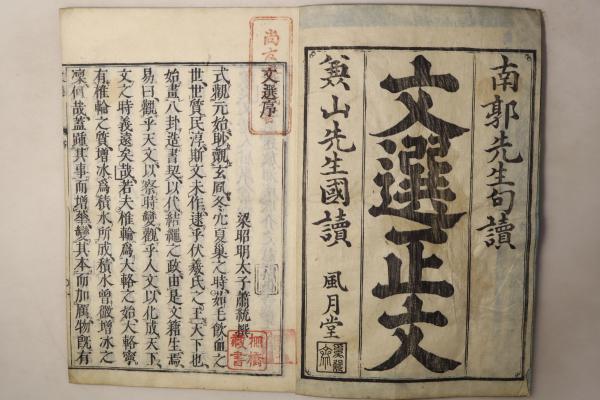 南郭先生句讀
文選正文
山先生國讀
風月堂
文選序
梁昭明太子蕭統撰
式觀元始眇覿玄風冬穴夏巢之時茹毛飲血之
世世質民淳斯文未作逮乎伏羲氏之王天下也
始畫八卦造書契以代結繩之政由是文籍生焉
易曰觀乎天文以察時變觀乎人文以化成天下
文之時義遠矣哉若夫椎輪爲大輅之始大輅寧
有椎輪之質增冰爲積水所成積水曾微增冰之
凛何哉蓋踵其事而增華變其本而加厲物既有
藏書